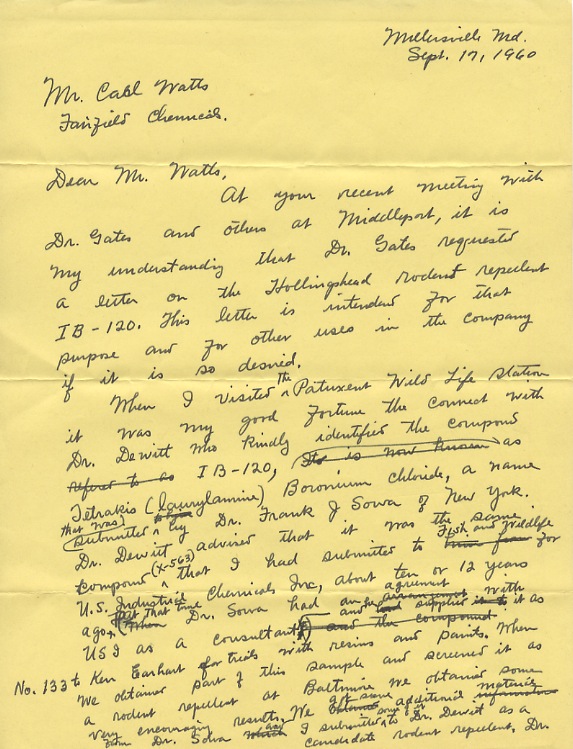 Millersville Md.
Sept. 17, 1960
Mr. Carl Watts
Fairfield Chemicals.
Dear Mr. Watts,
At your recent meeting with
Dr. Gates and others at Middleport, it is
my understanding that Dr. Gates requested
a letter on the Hollingshead rodent repellent
IB-120. This letter is intended for that
purpose and for other uses in the company
if it is so desired.
When I visited the Patuxent Wild Life Station
it was my good fortune the connect with
Dr. Dewitt who kindly identified the compound
refered to as IB-120, It is now known as
Tetrakis (laurylamine) Boronium Chloride, a name
that was submitted by Dr. Frank J Sowa of New York.
Dr. Dewitt advised that it was the same
compound (X-563) that I had submitted to Fish and Wildlife for
U.S. Industrial Chemicals Inc, about ten or 12 years
ago. At that time Dr. Sowa had an agreement with
USI as a consultant and he supplied it as
No. 133 to Ken Earhart for trials with resins and paints. When
We obtained part of this sample and screened it as
a rodent repellent at Baltimore we obtained some
very encouraging results. We additional
from Dr. Sowa I submitted to Dr. Dewitt as a
candidate rodent repellent. Dr.